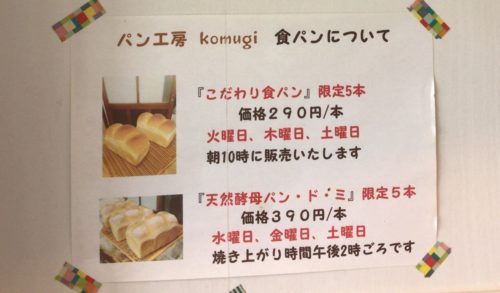 パン工房 komugi 食パンについて
『こだわり食パン』限定5本
価格290円/本
火曜日、木曜日、土曜日
朝10時に販売いたします
『天然酵母パン・ド・ミ』限定5本
価格390円/本
水曜日、金曜日、土曜日
焼き上がり時間午後2時ごろです